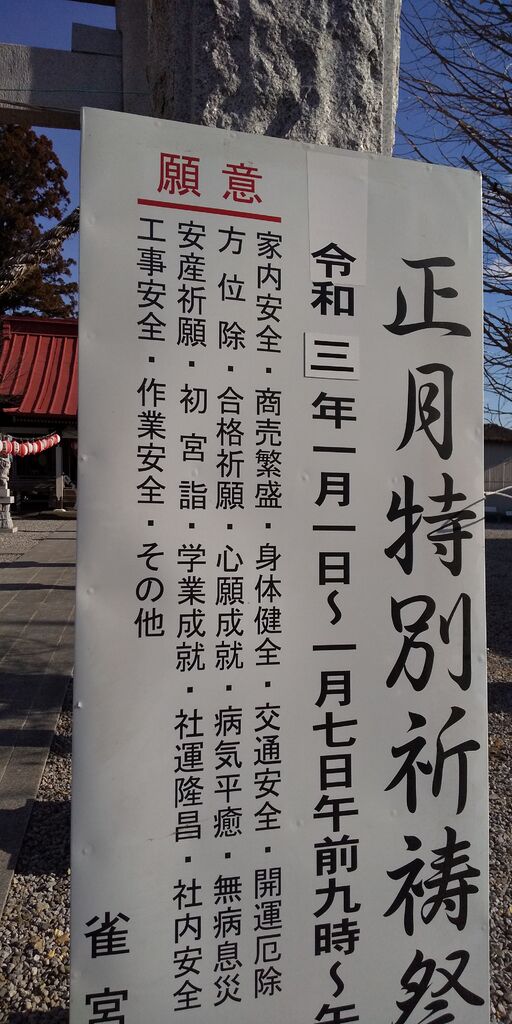 正月特別祈祷祭
令和三年一月一日～一月七日午前九時～午
願意
家内安全・商売繁盛・身体健全・交通安全・開運厄除
方位除・合格祈願・心願成就・病気平癒・無病息災
安産祈願・初宮詣・学業成就・社運隆昌・社内安全
工事安全・作業安全・その他
雀宮